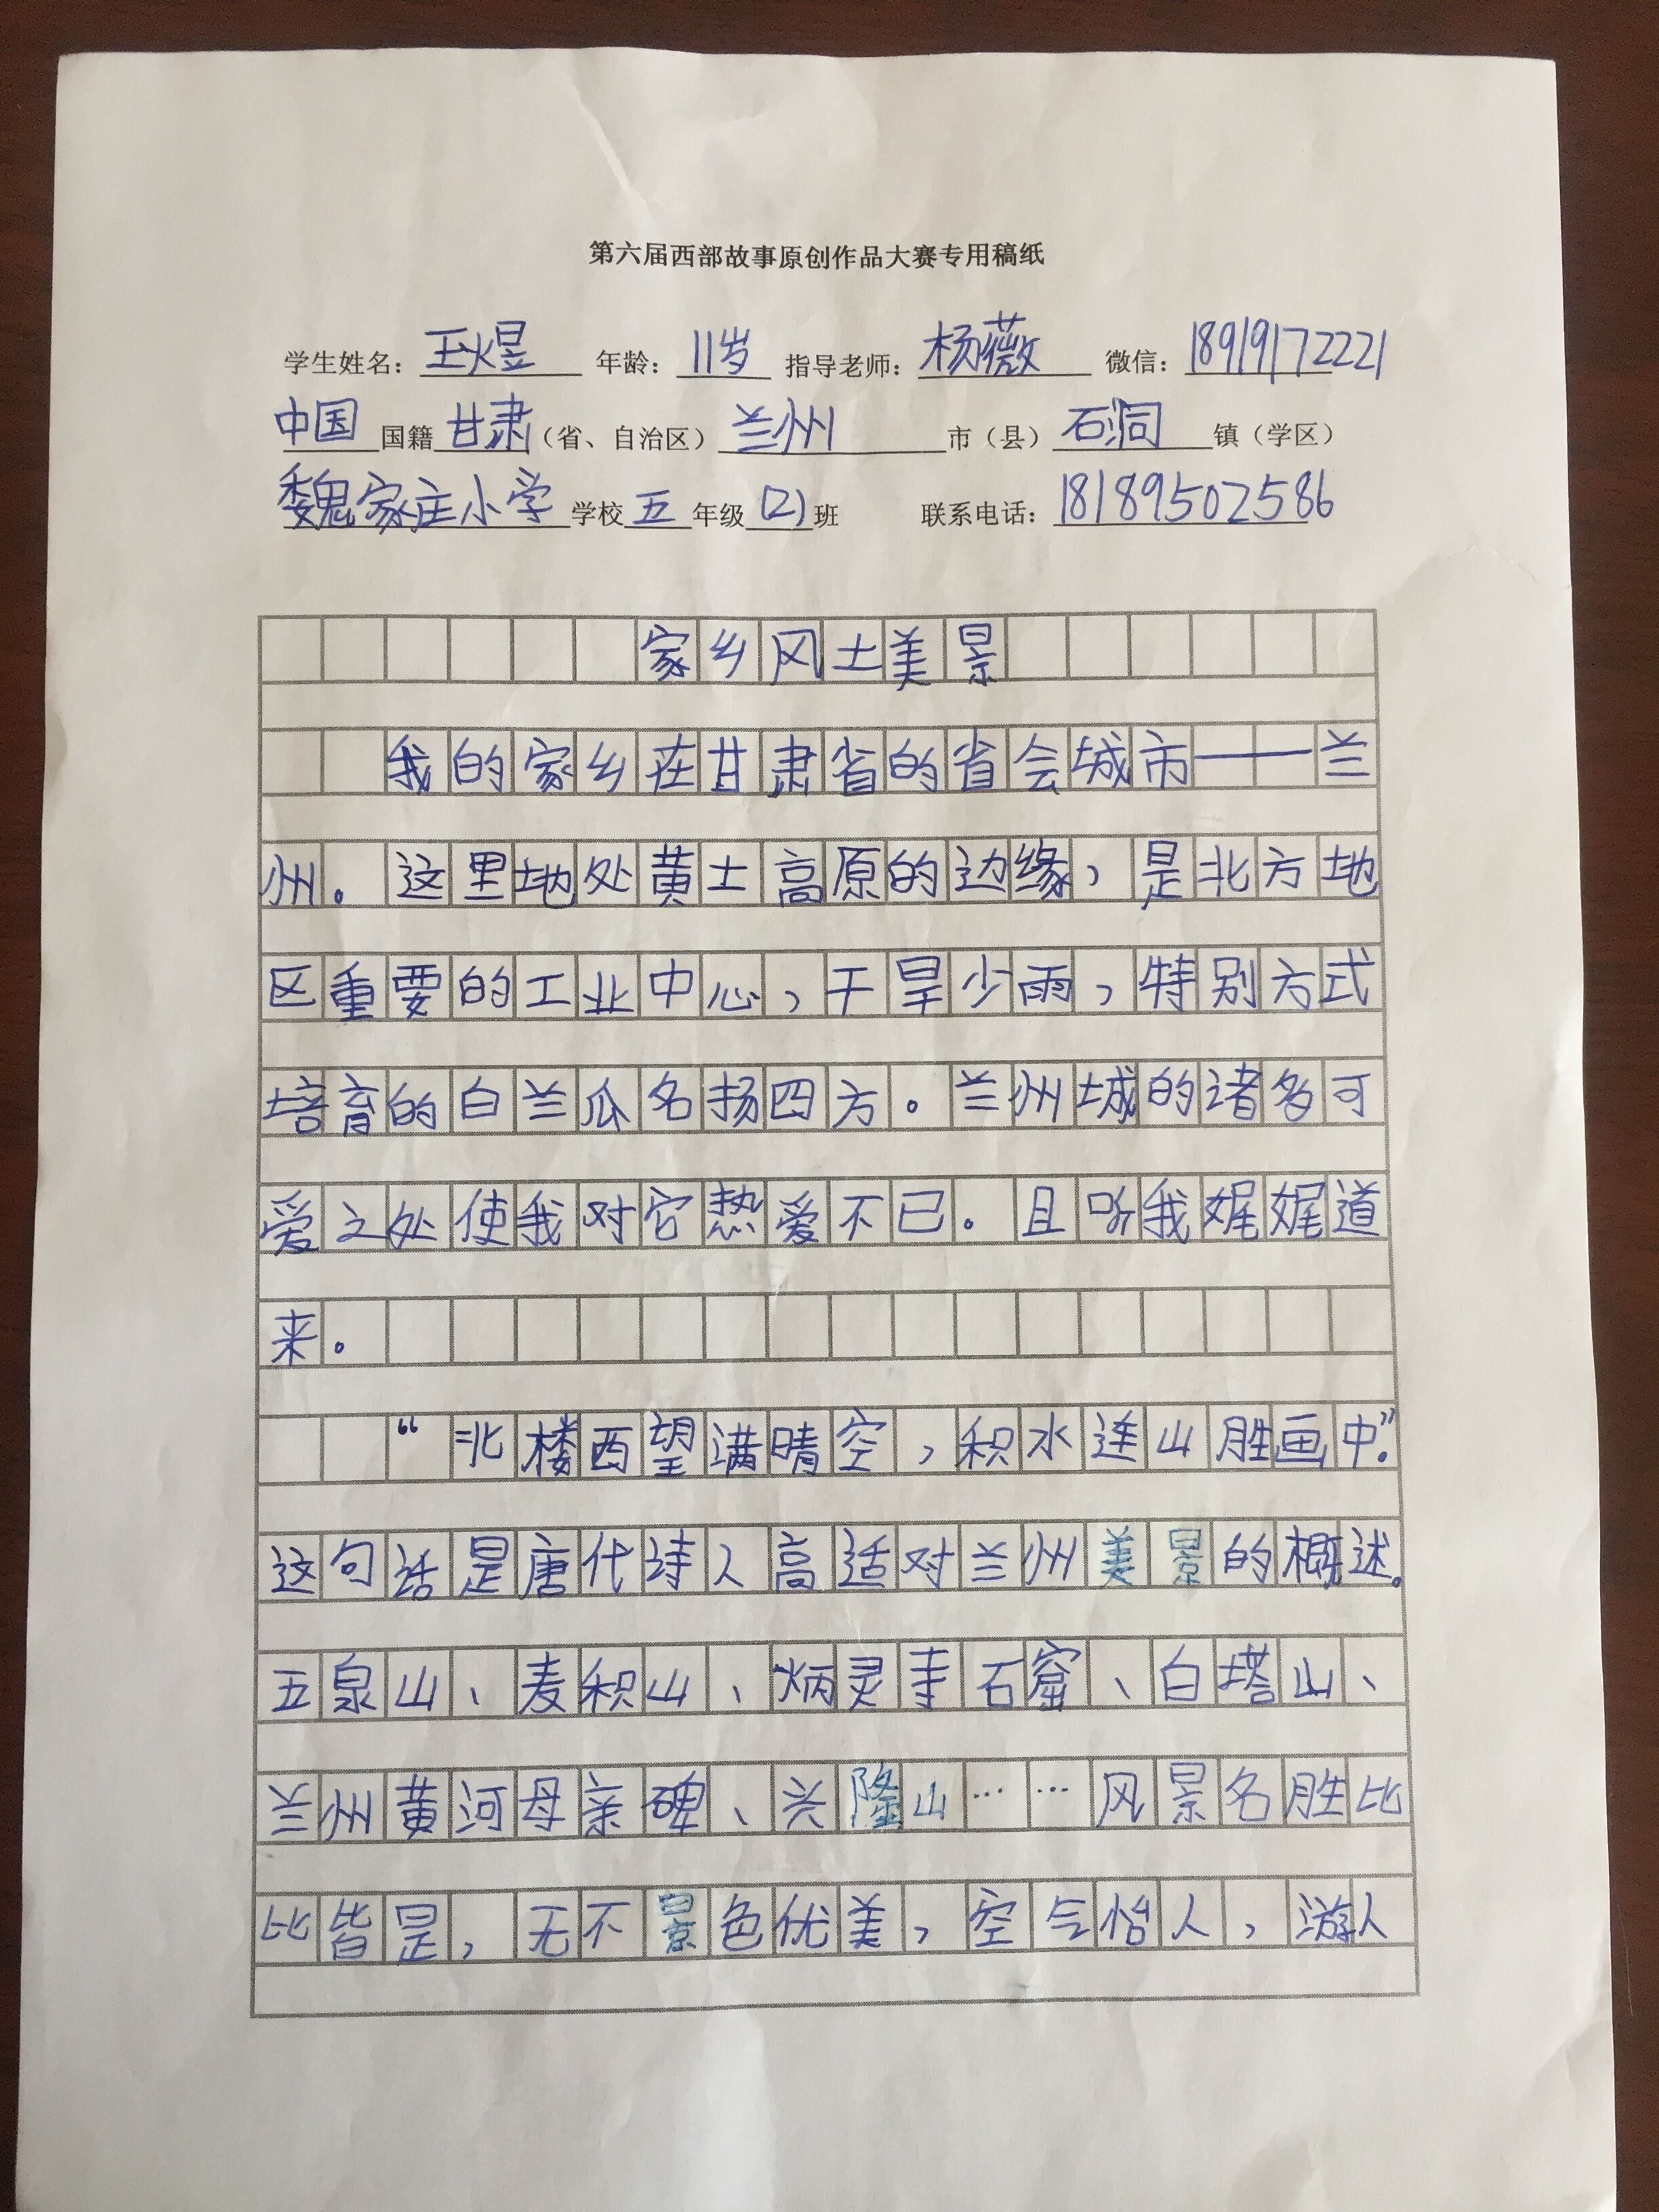 第六届西部故事原创作品大赛专用稿纸
学生姓名：王煜 年龄：11岁 指导老师：杨薇 微信：18919172221
中国国籍甘肃（省、自治区）兰州市（县）石洞镇（学区）
魏家庄小学学校五年级(2)班 联系电话：18189502586
家乡风土美景
我的家乡在甘肃省的省会城市——兰
州。这里地处黄土高原的边缘，是北方地
区重要的工业中心，干旱少雨，特别方式
培育的白兰瓜名扬四方。兰州城的诸多可
爱之处使我对它热爱不已。且听我娓娓道
来。
“北楼西望满晴空，积水连山胜画中”。
这句话是唐代诗人高适对兰州美景的概述。
五泉山、麦积山、炳灵寺石窟、白塔山、
兰州黄河母亲碑、兴隆山……风景名胜比
比皆是，无不景色优美，空气怡人，游人